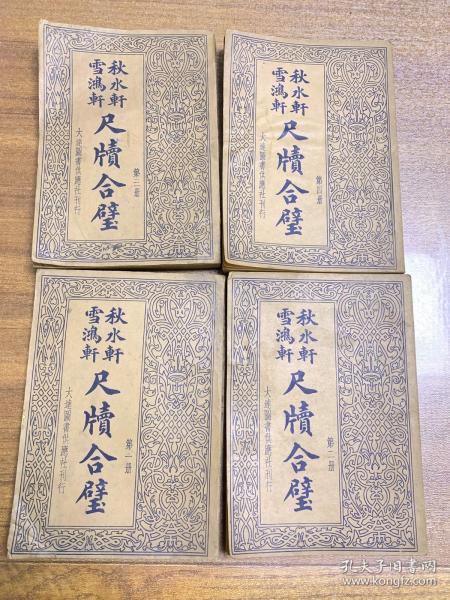 秋水軒
雪鴻軒
尺牘合璧
第三册
大達圖書供應社刊行
秋水軒
雪鴻軒
尺牘合璧
第四册
大達圖書供應社刊行
秋水軒
雪鴻軒
尺牘合璧
第一册
大達圖書供應社刊行
秋水軒
雪鴻軒
尺牘合璧
第二册
大達圖書供應社刊行
孔夫子旧书网
www.kongfz.com